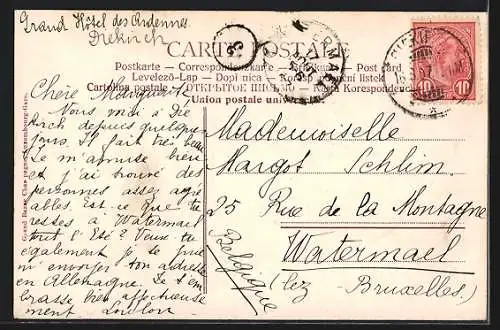 Grand Hôtel des Ardennes
Diekirch
CARTE POSTALE
Postkarte — Correspondenzkarte — Brefkort — Post card
Levelező-Lap — Dopisnica — Korespondenční lístek
Cartolina postale — ОТКРЫТОЕ ПИСЬМО — Karta Korespondencyjna
Union postale universelle
25
10 10
Chère Marguerite
Vous voici à Die
kirch depuis quelque
jours. Il fait très beau
Je m'amuse bien
et j'ai trouvé des
personnes assez agré
ables. Est-ce que tu
restes à Watermael
tout l'Eté? Veux-tu
également je te prie
m'envoyer ton adresse
en Allemagne. Je t'em
brasse bien affectueuse
ment Loulou
Mademoiselle
Margot Schlim
25 Rue de la Montagne
Watermael
(lez Bruxelles)
Belgique
Grand Bazar Champagne, Luxembourg-Gare.